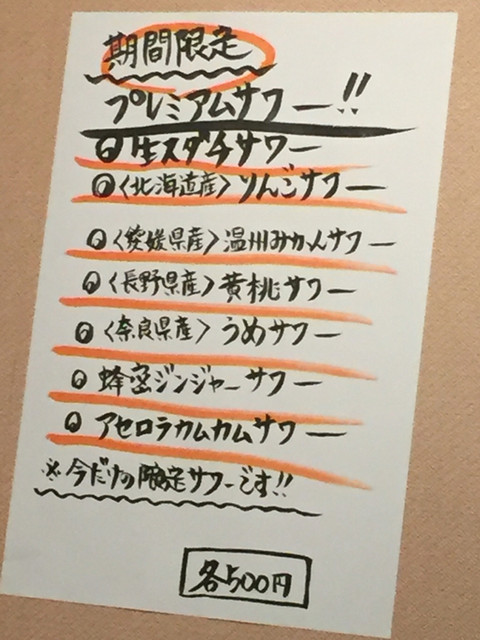 期間限定
プレミアムサワー!!
◎生スダチサワー
◎〈北海道産〉りんごサワー
◎〈愛媛県産〉温州みかんサワー
◎〈長野県産〉黄桃サワー
◎〈奈良県産〉うめサワー
◎蜂蜜ジンジャーサワー
◎アセロラカムカムサワー
※今だけの限定サワーです!!
各500円